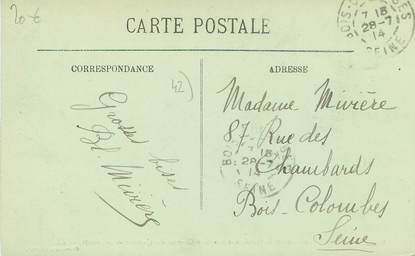 20 €
CARTE POSTALE
CORRESPONDANCE
ADRESSE
42
Grosses bises
Bl. Mivière
Madame Mivière
87 Rue des
Chambards
Bois-Colombes
Seine
BOIS-
7 15
28-7
14
SEINE
BOIS
7 15
28-7
14
SEINE